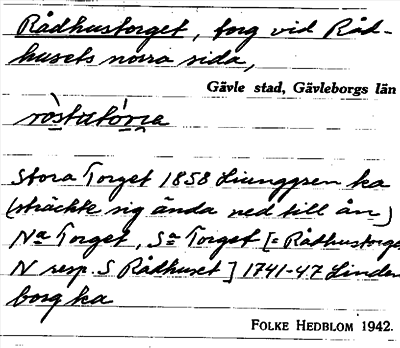 Rådhustorget, torg vid Råd-
husets norra sida,
Gävle stad, Gävleborgs län
Stora Torget 1858 Ljunggren ka
(sträckte sig ända ned till ån)
Na Torget, Sa Torget [= Rådhustorget
N resp. S Rådhuset] 1741-47 Linden
borg ka
FOLKE HEDBLOM 1942.